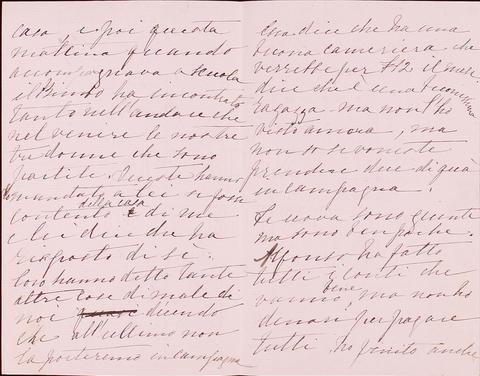 casa, e poi questa
mattina quando
accompagnava a scuola
il Bimbo ha incontrato
tanto nell'andare che
nel venere le nostre
tre donne che sono
partite. Queste hanno
mandato a lei se fosse
contento della casa e di me
e lei dice che ha
risposto di sì.
loro hanno detto tante
altre cose di male di
noi dicendo
che all'ultimo non
la porteremo in campagna
Essa dice che ha una
buona cameriera che
verrebbe per £12 il mese
dice che è una buonissima
ragazza ma non l'ho
vista ancora, ma
non so se voreste
prendere due di quà
in campagna.
Le uova sono giunte
ma sono ben poche.
Alfonso ha fatto
tutti i conti che
vanno bene, ma non ho
denari per pagare
tutti. ho finito anche